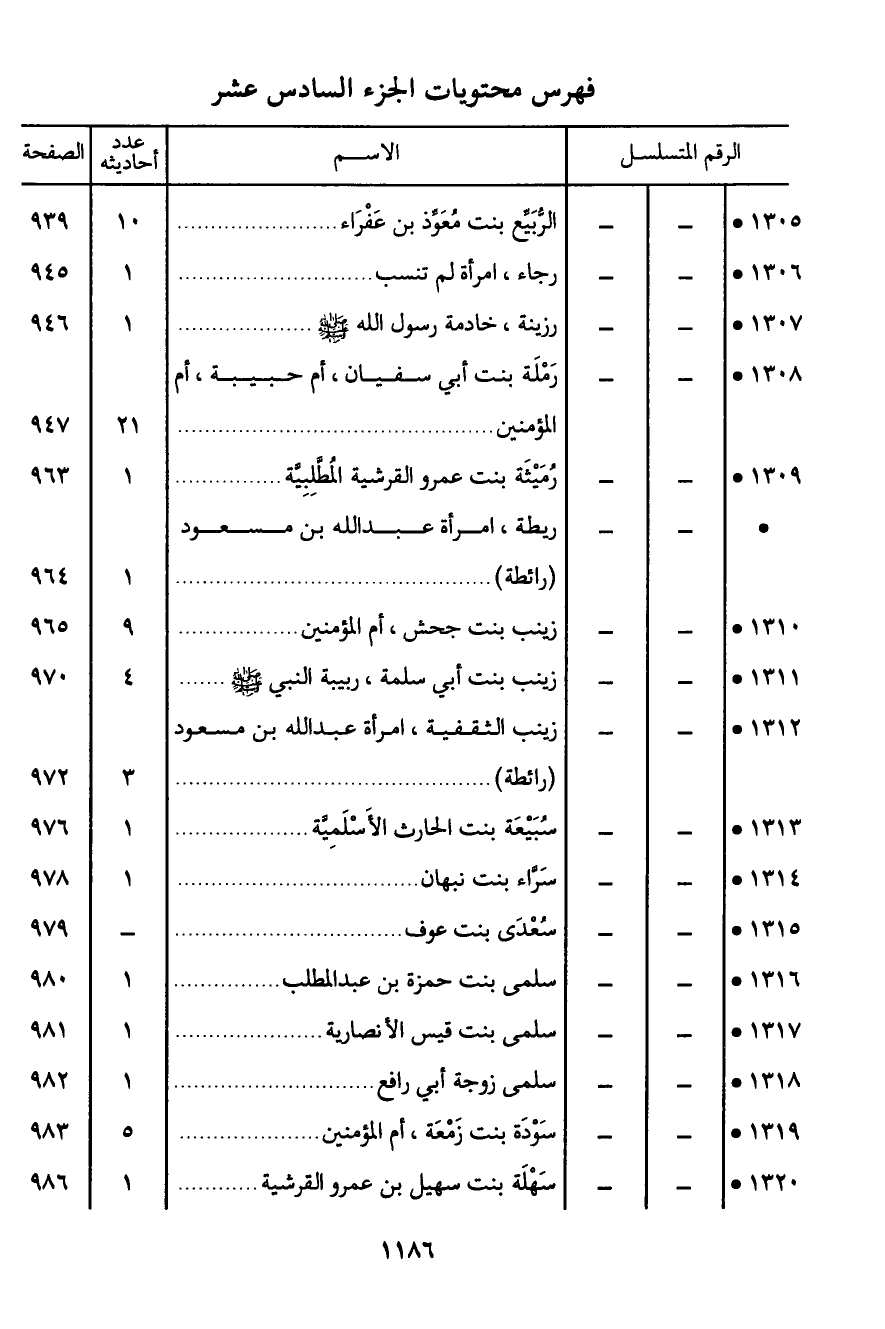 فهرس محتويات الجزء السادس عشر
الرقم المتسلسل الاســـم عدد أحاديثه الصفحة
١٣٠٥ • – – الرُّبَيِّع بنت مُعَوِّذ بن عَفْرَاء ........................ ١٠ ٩٣٩
١٣٠٦ • – – رجاء ، امرأة لم تنسب ............................. ١ ٩٤٥
١٣٠٧ • – – رزينة ، خادمة رسول الله ﷺ .................... ١ ٩٤٦
١٣٠٨ • – – رَمْلَة بنت أبي سـفـيـان ، أم حـبـيـبـة ، أم
المؤمنين ............................................... ٢١ ٩٤٧
١٣٠٩ • – – رُمَيْثَة بنت عمرو القرشية المُطَّلِبِيَّة ................ ١ ٩٦٣
• – – ريطة ، امـرأة عـبـدالله بن مـسـعـود
(رائطة) ............................................... ١ ٩٦٤
١٣١٠ • – – زينب بنت جحش ، أم المؤمنين .................. ٩ ٩٦٥
١٣١١ • – – زينب بنت أبي سلمة ، ربيبة النبي ﷺ ....... ٤ ٩٧٠
١٣١٢ • – – زينب الثقفية ، امرأة عبدالله بن مسعود
(رائطة) ............................................... ٣ ٩٧٢
١٣١٣ • – – سُبَيْعَة بنت الحارث الأَسْلَمِيَّة .................... ١ ٩٧٦
١٣١٤ • – – سَرَّاء بنت نبهان .................................... ١ ٩٧٨
١٣١٥ • – – سُعْدَى بنت عوف .................................. – ٩٧٩
١٣١٦ • – – سلمى بنت حمزة بن عبدالمطلب ................ ١ ٩٨٠
١٣١٧ • – – سلمى بنت قيس الأنصارية ...................... ١ ٩٨١
١٣١٨ • – – سلمى زوجة أبي رافع .............................. ١ ٩٨٢
١٣١٩ • – – سَوْدَة بنت زَمْعَة ، أم المؤمنين ..................... ٥ ٩٨٣
١٣٢٠ • – – سَهْلَة بنت سهيل بن عمرو القرشية ............ ١ ٩٨٦
١١٨٦